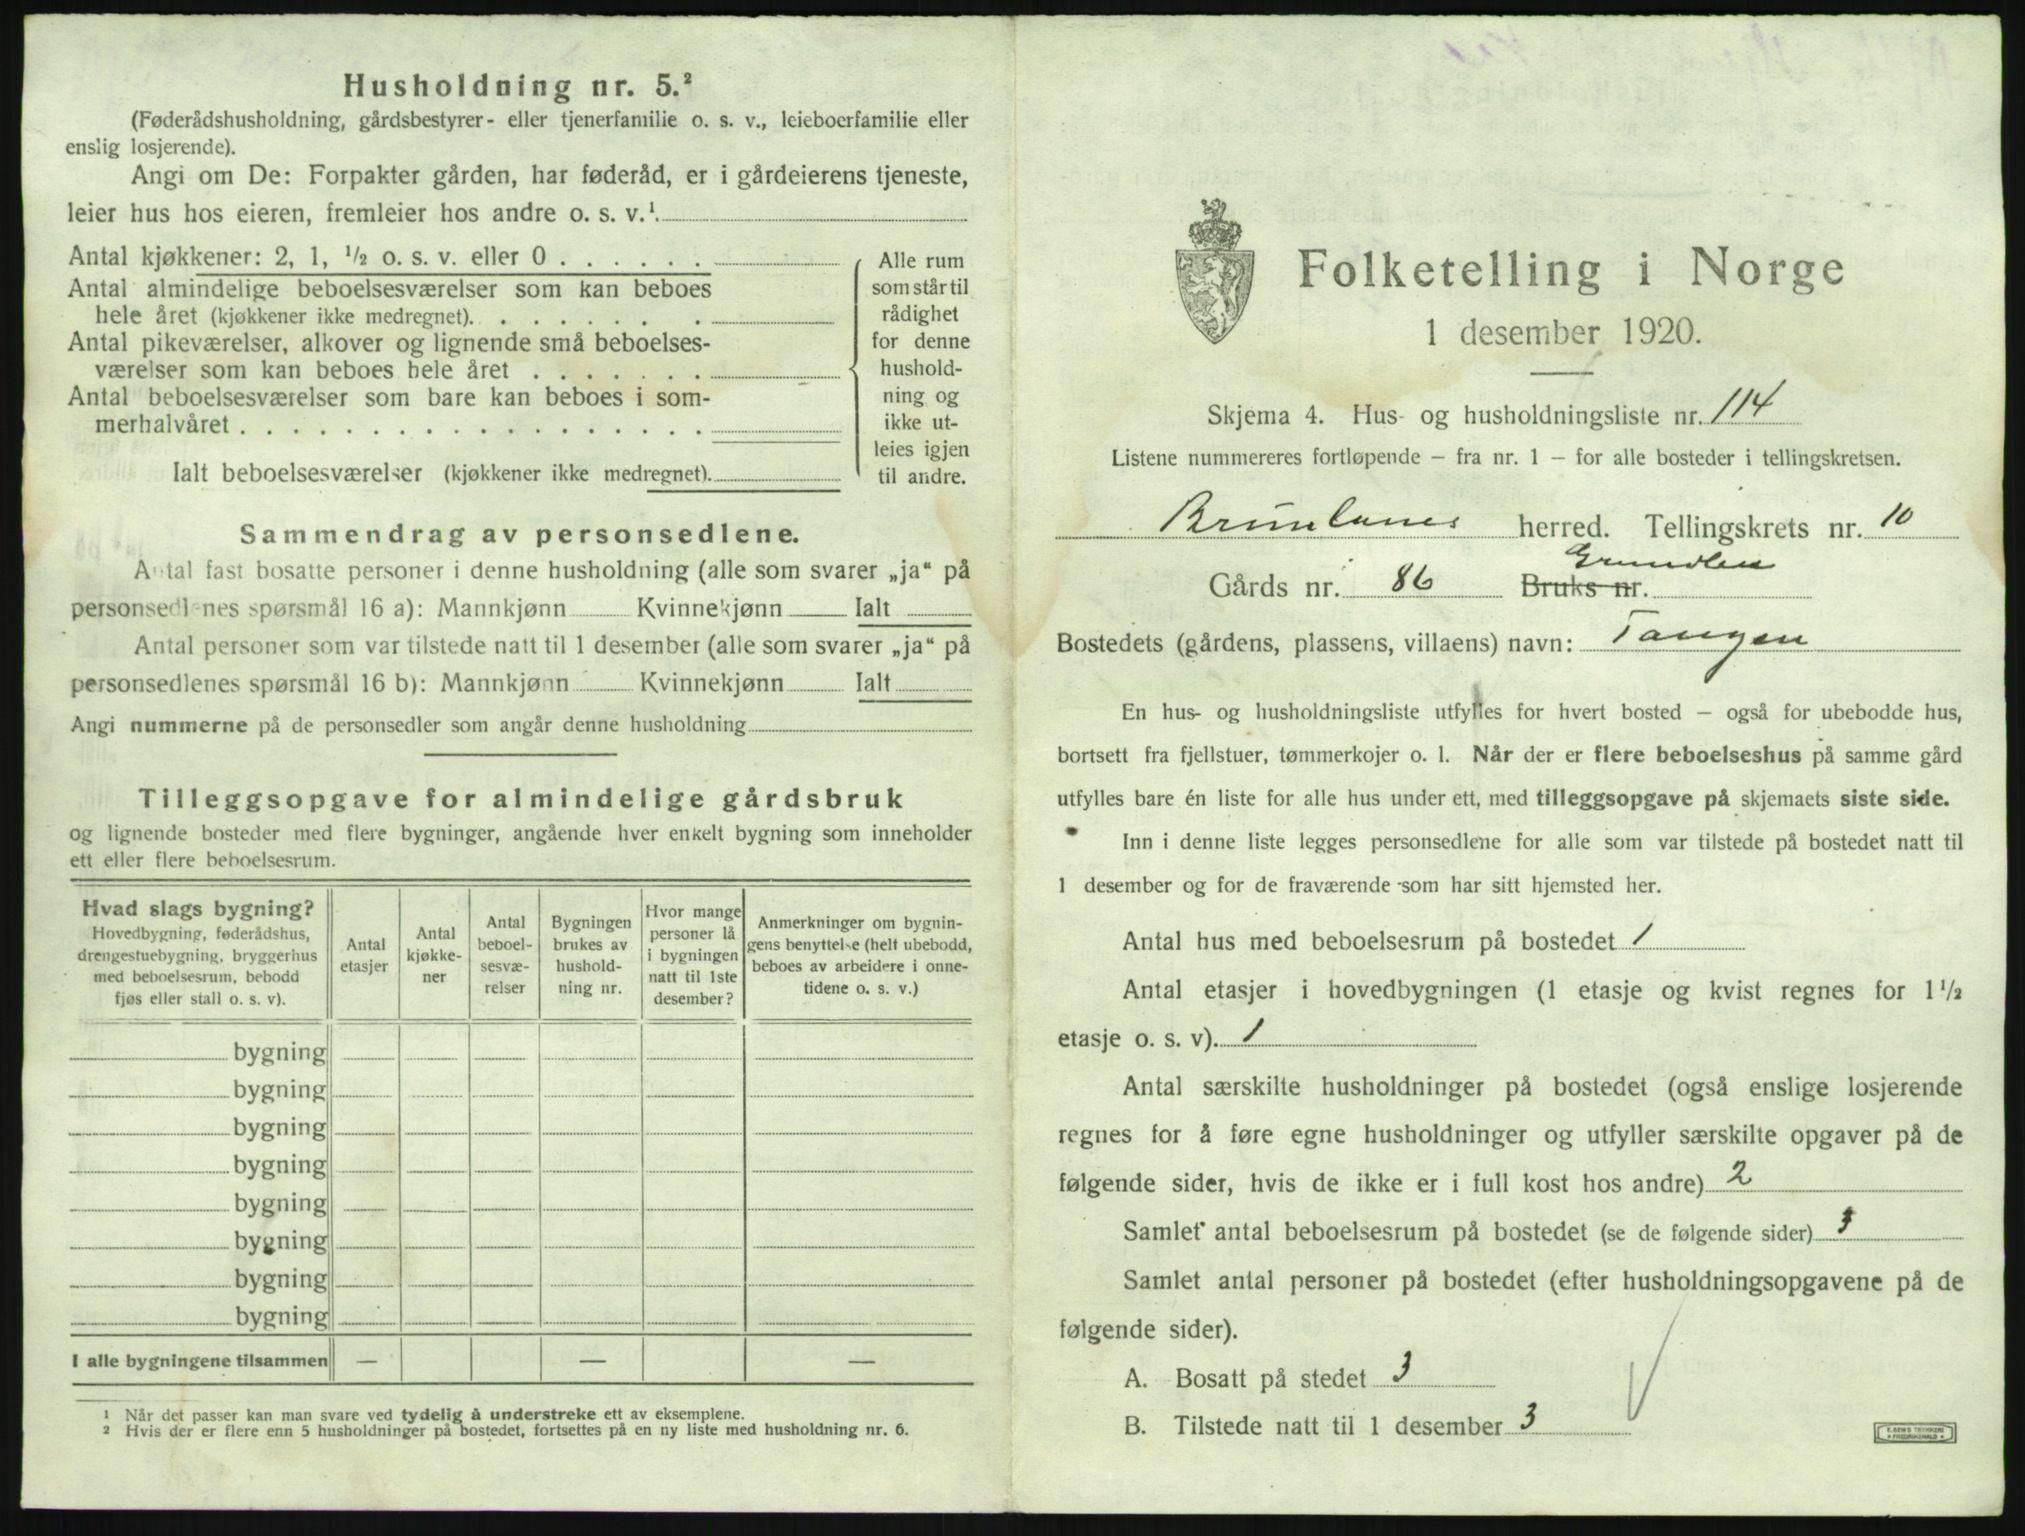 Husholdning nr. 5.²
(Føderådshusholdning, gårdsbestyrer- eller tjenerfamilie o. s. v., leieboerfamilie eller
enslig losjerende).
Angi om De: Forpakter gården, har føderåd, er i gårdeierens tjeneste,
leier hus hos eieren, fremleier hos andre o. s. v.¹
Antal kjøkkener: 2, 1, ½ o. s. v. eller 0 . . . . . .
Antal almindelige beboelsesværelser som kan beboes
hele året (kjøkkener ikke medregnet). . . . . . . .
Antal pikeværelser, alkover og lignende små beboelses-
værelser som kan beboes hele året . . . . . . .
Antal beboelsesværelser som bare kan beboes i som-
merhalvåret . . . . . . . . . . . . . . . . . .
Ialt beboelsesværelser (kjøkkener ikke medregnet).
Alle rum
som står til
rådighet
for denne
hushold-
ning og
ikke ut-
leies igjen
til andre.
Sammendrag av personsedlene.
Antal fast bosatte personer i denne husholdning (alle som svarer „ja“ på
personsedlenes spørsmål 16 a): Mannkjønn Kvinnekjønn Ialt
Antal personer som var tilstede natt til 1 desember (alle som svarer „ja“ på
personsedlenes spørsmål 16 b): Mannkjønn Kvinnekjønn Ialt
Angi nummerne på de personsedler som angår denne husholdning
Tilleggsopgave for almindelige gårdsbruk
og lignende bosteder med flere bygninger, angående hver enkelt bygning som inneholder
ett eller flere beboelsesrum.
Hvad slags bygning?
Hovedbygning, føderådshus,
drengestuebygning, bryggerhus
med beboelsesrum, bebodd
fjøs eller stall o. s. v).
Antal
etasjer
Antal
kjøkke-
ner
Antal
beboel-
sesvæ-
relser
Bygningen
brukes av
hushold-
ning nr.
Hvor mange
personer lå
i bygningen
natt til 1ste
desember?
Anmerkninger om bygnin-
gens benyttelse (helt ubebodd,
beboes av arbeidere i onne-
tidene o. s. v.)
bygning
bygning
bygning
bygning
bygning
bygning
bygning
bygning
I alle bygningene tilsammen — — —
¹ Når det passer kan man svare ved tydelig å understreke ett av eksemplene.
² Hvis der er flere enn 5 husholdninger på bostedet, fortsettes på en ny liste med husholdning nr. 6.
Folketelling i Norge
1 desember 1920.
Skjema 4. Hus- og husholdningsliste nr. 114
Listene nummereres fortløpende – fra nr. 1 – for alle bosteder i tellingskretsen.
Brunlanes herred. Tellingskrets nr. 10
Grundlei
Gårds nr. 86 Bruks nr.
Bostedets (gårdens, plassens, villaens) navn: Tangen
En hus- og husholdningsliste utfylles for hvert bosted – også for ubebodde hus,
bortsett fra fjellstuer, tømmerkojer o. l. Når der er flere beboelseshus på samme gård
utfylles bare én liste for alle hus under ett, med tilleggsopgave på skjemaets siste side.
Inn i denne liste legges personsedlene for alle som var tilstede på bostedet natt til
1 desember og for de fraværende som har sitt hjemsted her.
Antal hus med beboelsesrum på bostedet 1
Antal etasjer i hovedbygningen (1 etasje og kvist regnes for 1½
etasje o. s. v). 1
Antal særskilte husholdninger på bostedet (også enslige losjerende
regnes for å føre egne husholdninger og utfyller særskilte opgaver på de
følgende sider, hvis de ikke er i full kost hos andre) 2
Samlet antal beboelsesrum på bostedet (se de følgende sider) 3
Samlet antal personer på bostedet (efter husholdningsopgavene på de
følgende sider).
A. Bosatt på stedet 3
B. Tilstede natt til 1 desember 3